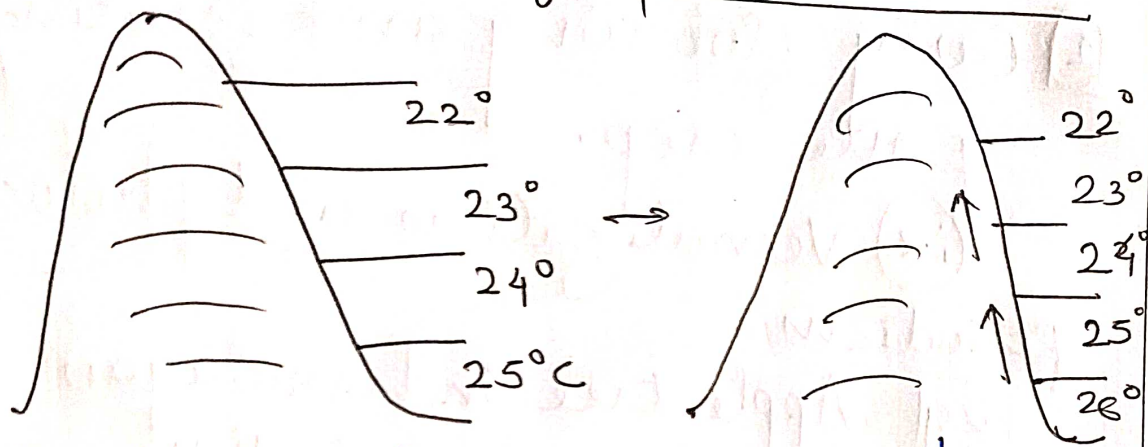 22°
23°
24°
25°C
22°
23°
24°
25°
26°